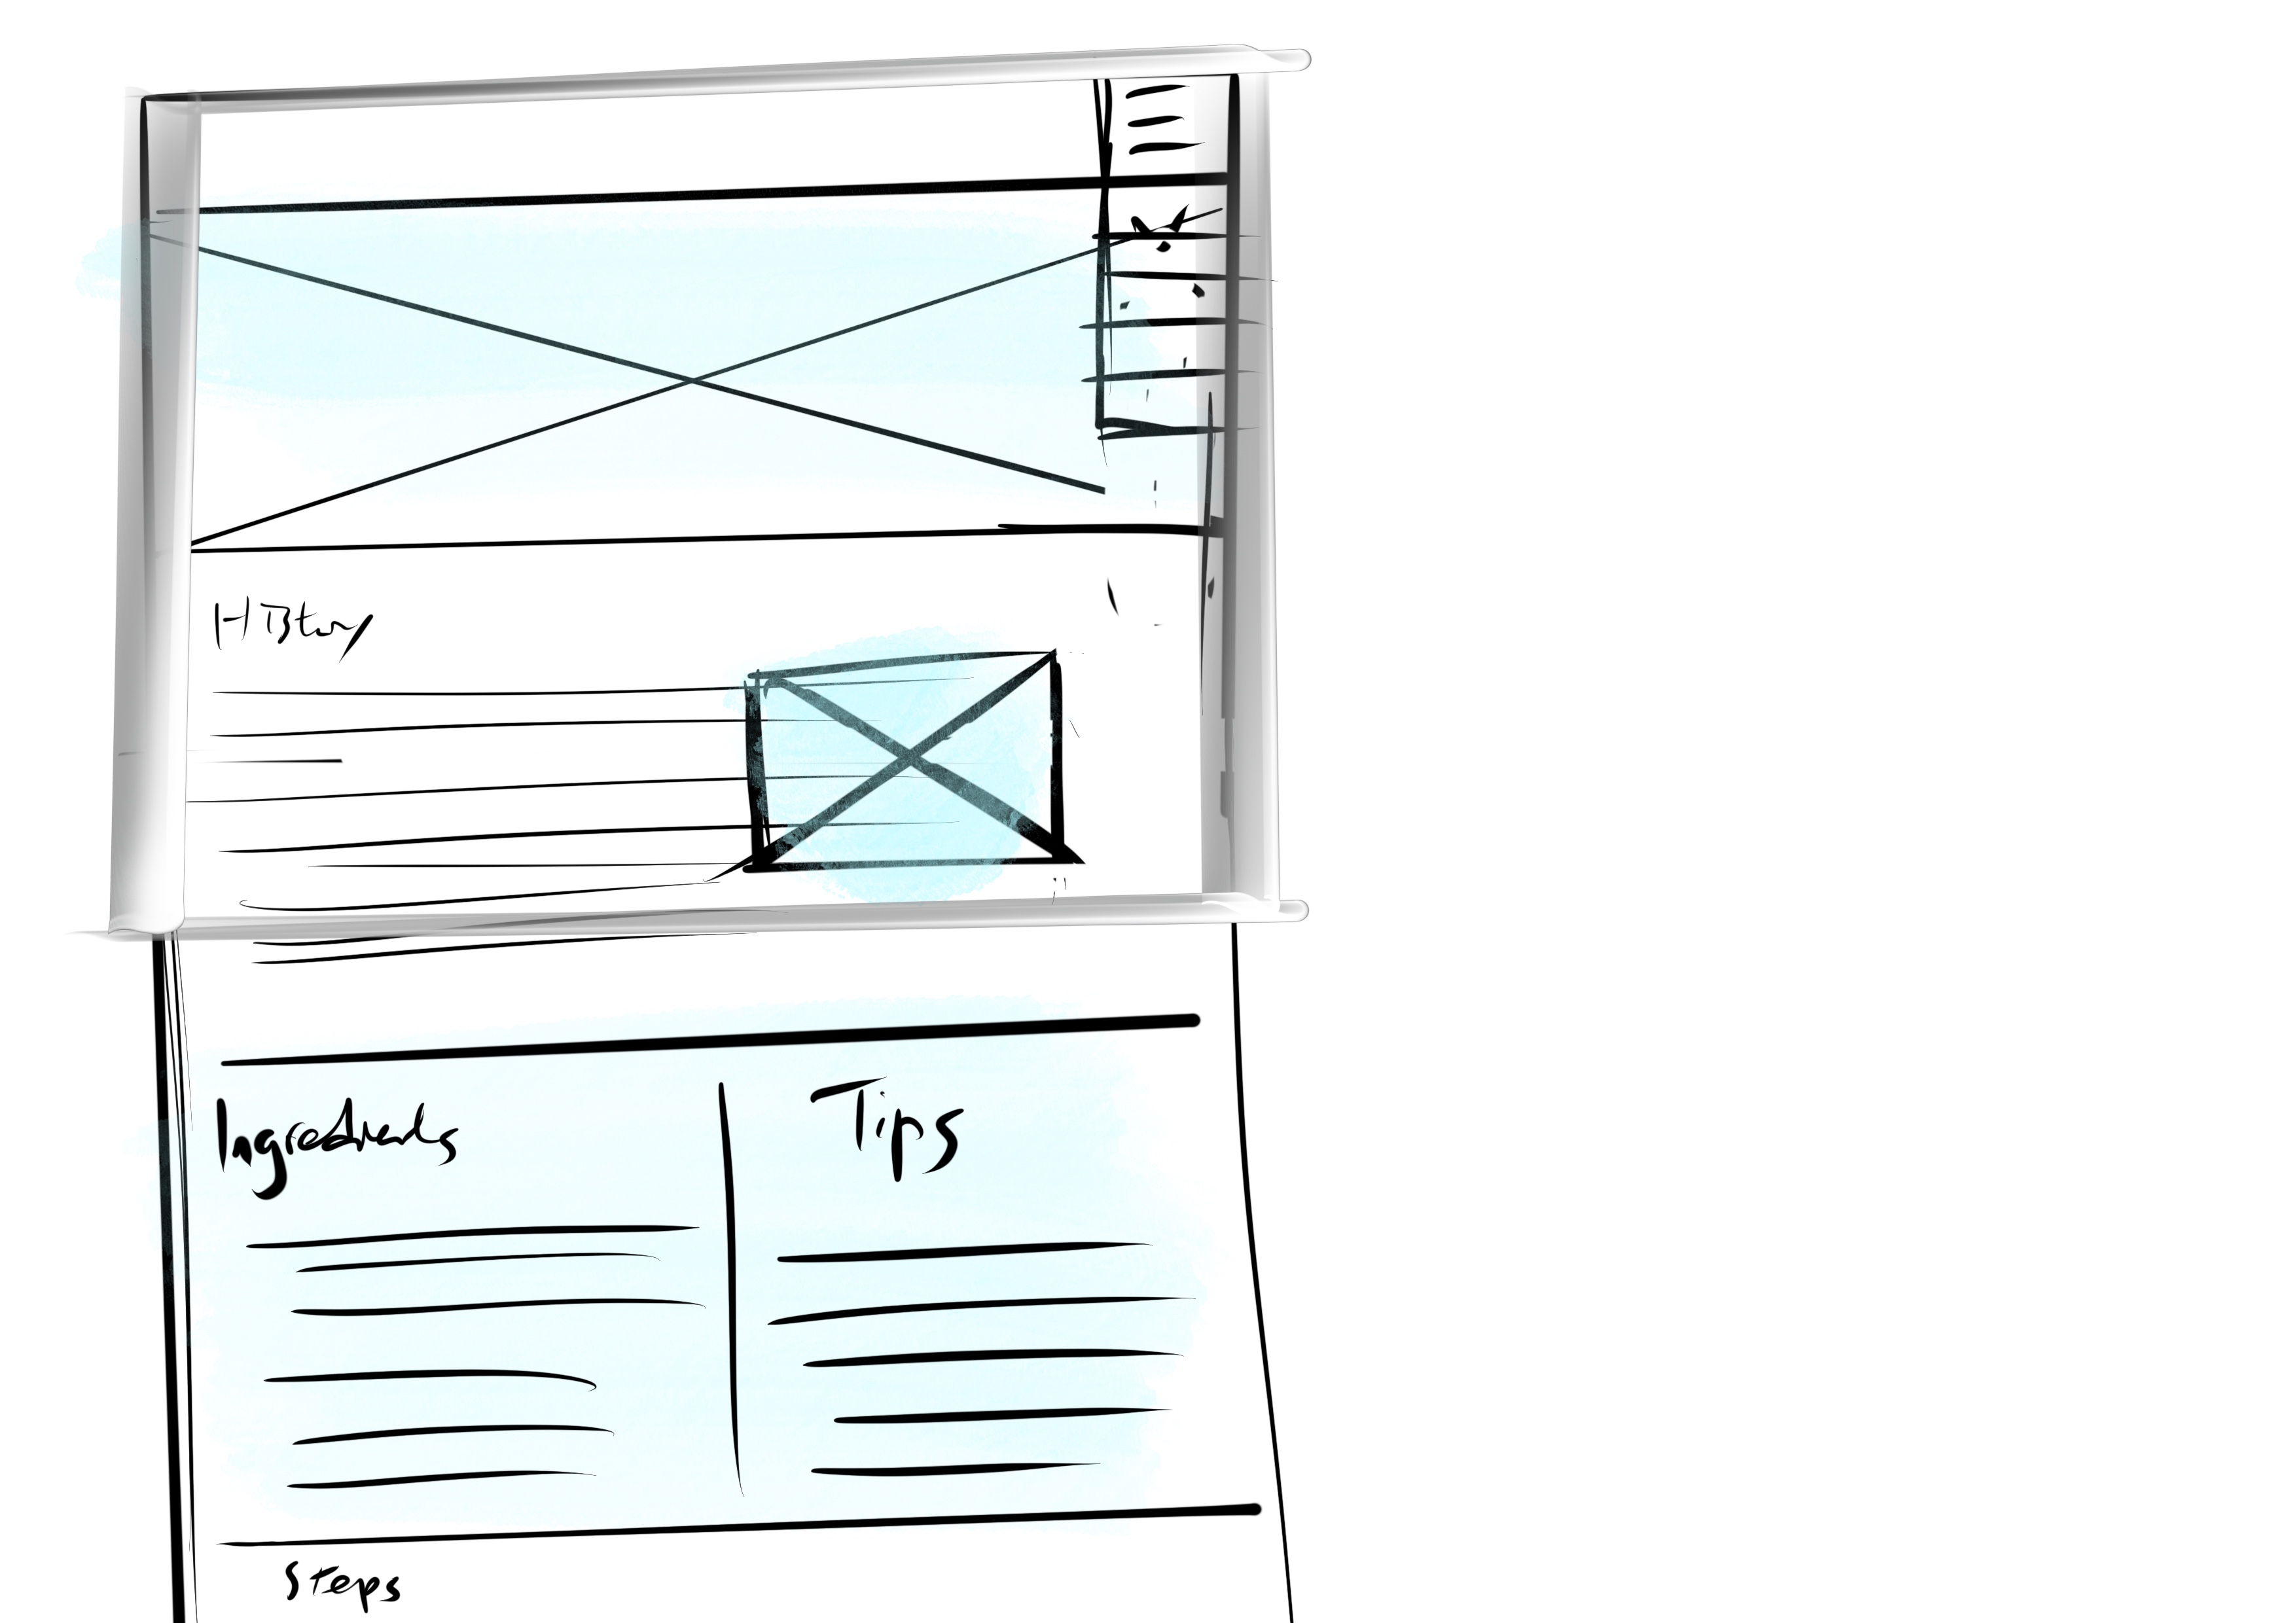 History
Ingredients
Tips
Steps